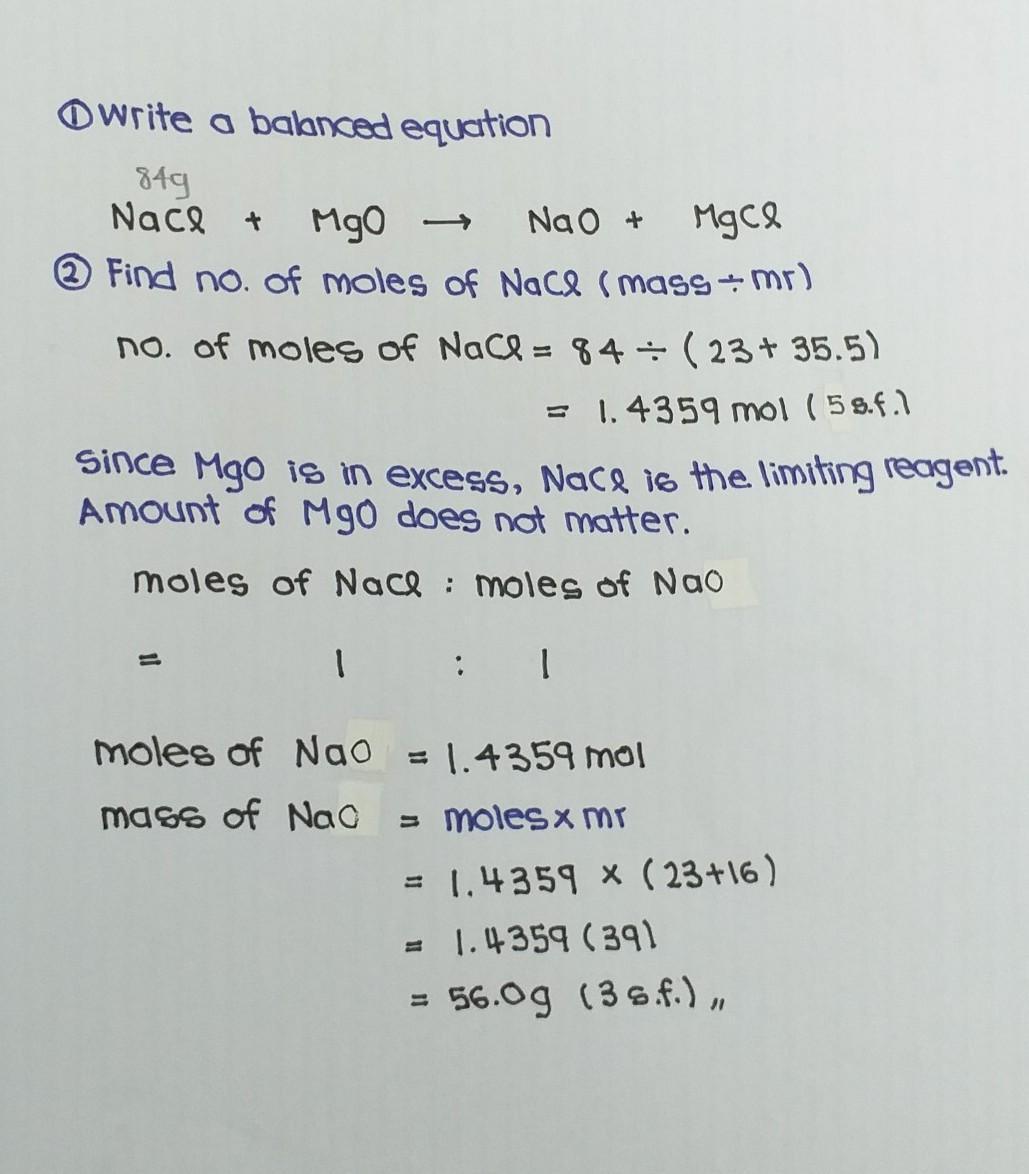 ① Write a balanced equation
84g
NaCl + MgO → NaO + MgCl
② Find no. of moles of NaCl (mass ÷ mr)
no. of moles of NaCl = 84 ÷ (23 + 35.5)
= 1.4359 mol (5 s.f.)
Since MgO is in excess, NaCl is the limiting reagent.
Amount of MgO does not matter.
moles of NaCl : moles of NaO
= 1 : 1
moles of NaO = 1.4359 mol
mass of NaO = moles x mr
= 1.4359 x (23+16)
= 1.4359 (39)
= 56.0g (3 s.f.) ,,